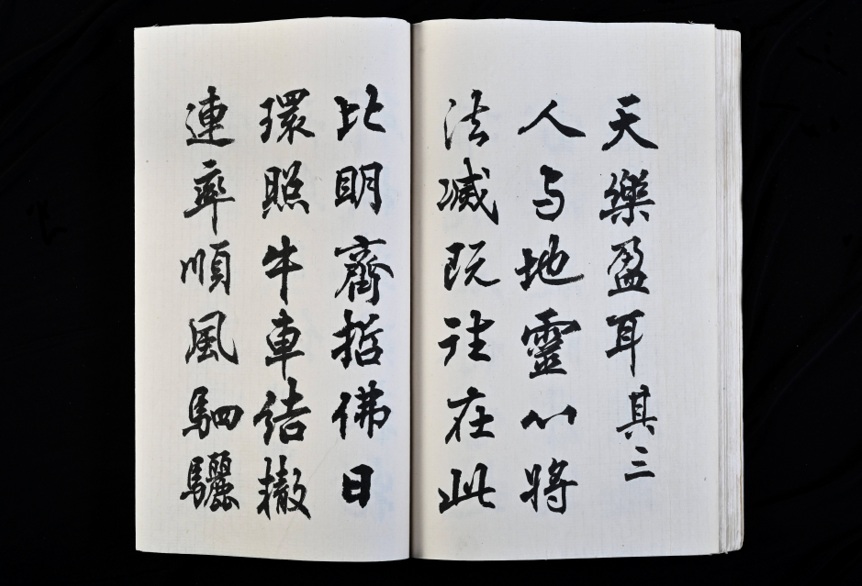 天樂盈耳其三
人与地靈心將
法滅既往在此
比明齊哲佛日
環照牛車結轍
連率順風駟驪